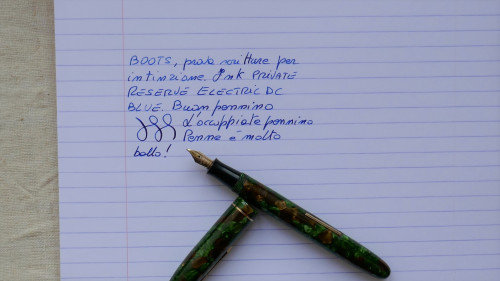 BOOTS, prova scritture per
intinzione. Ink PRIVATE
RESERVE ELECTRIC DC
BLUE. Buon pennino
L'accoppiata pennino
Penna è molto
bella!